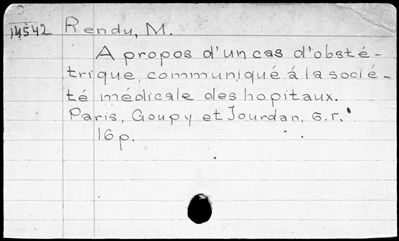 14542 Rendu, M.
A propos d'un cas d'obsté-
trique, communiqué à la socié-
té médicale des hopitaux.
Paris, Goupy et Jourdan, s.r.
16p.